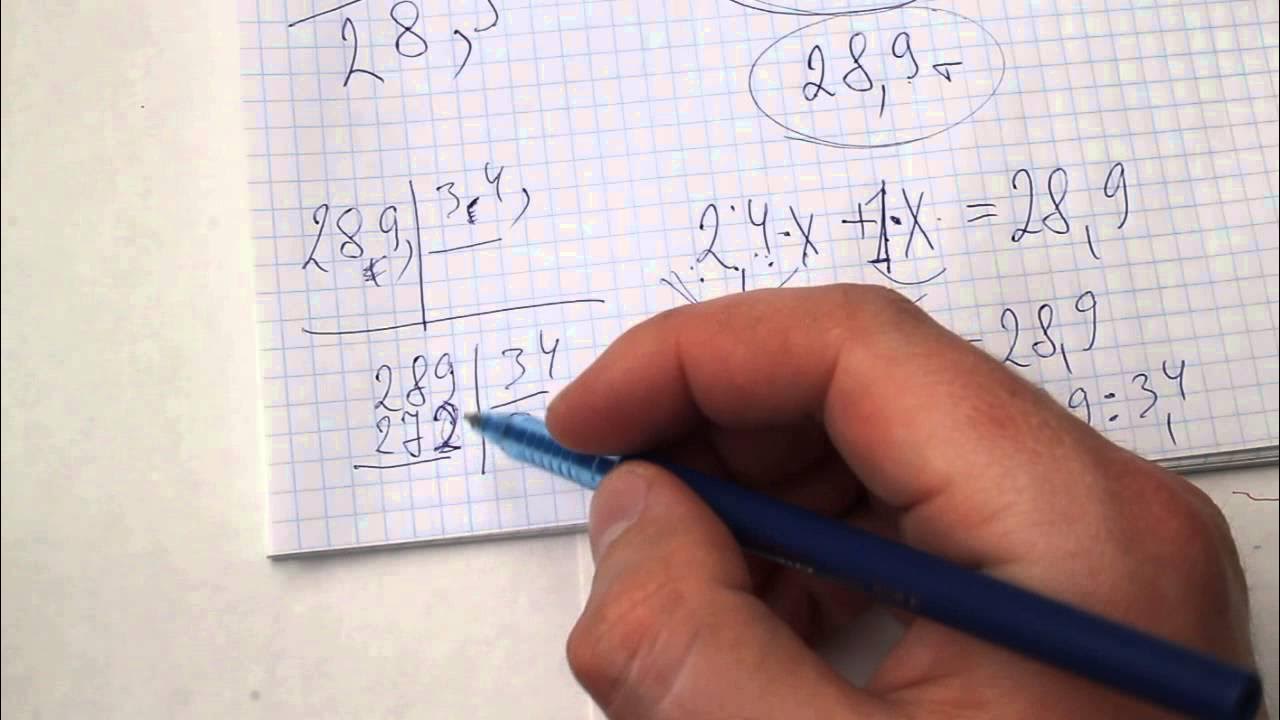 28,
28,9
28,9, 3,4,
2,4·X + 1·X = 28,9
28,9
289 34
9:3,4
272